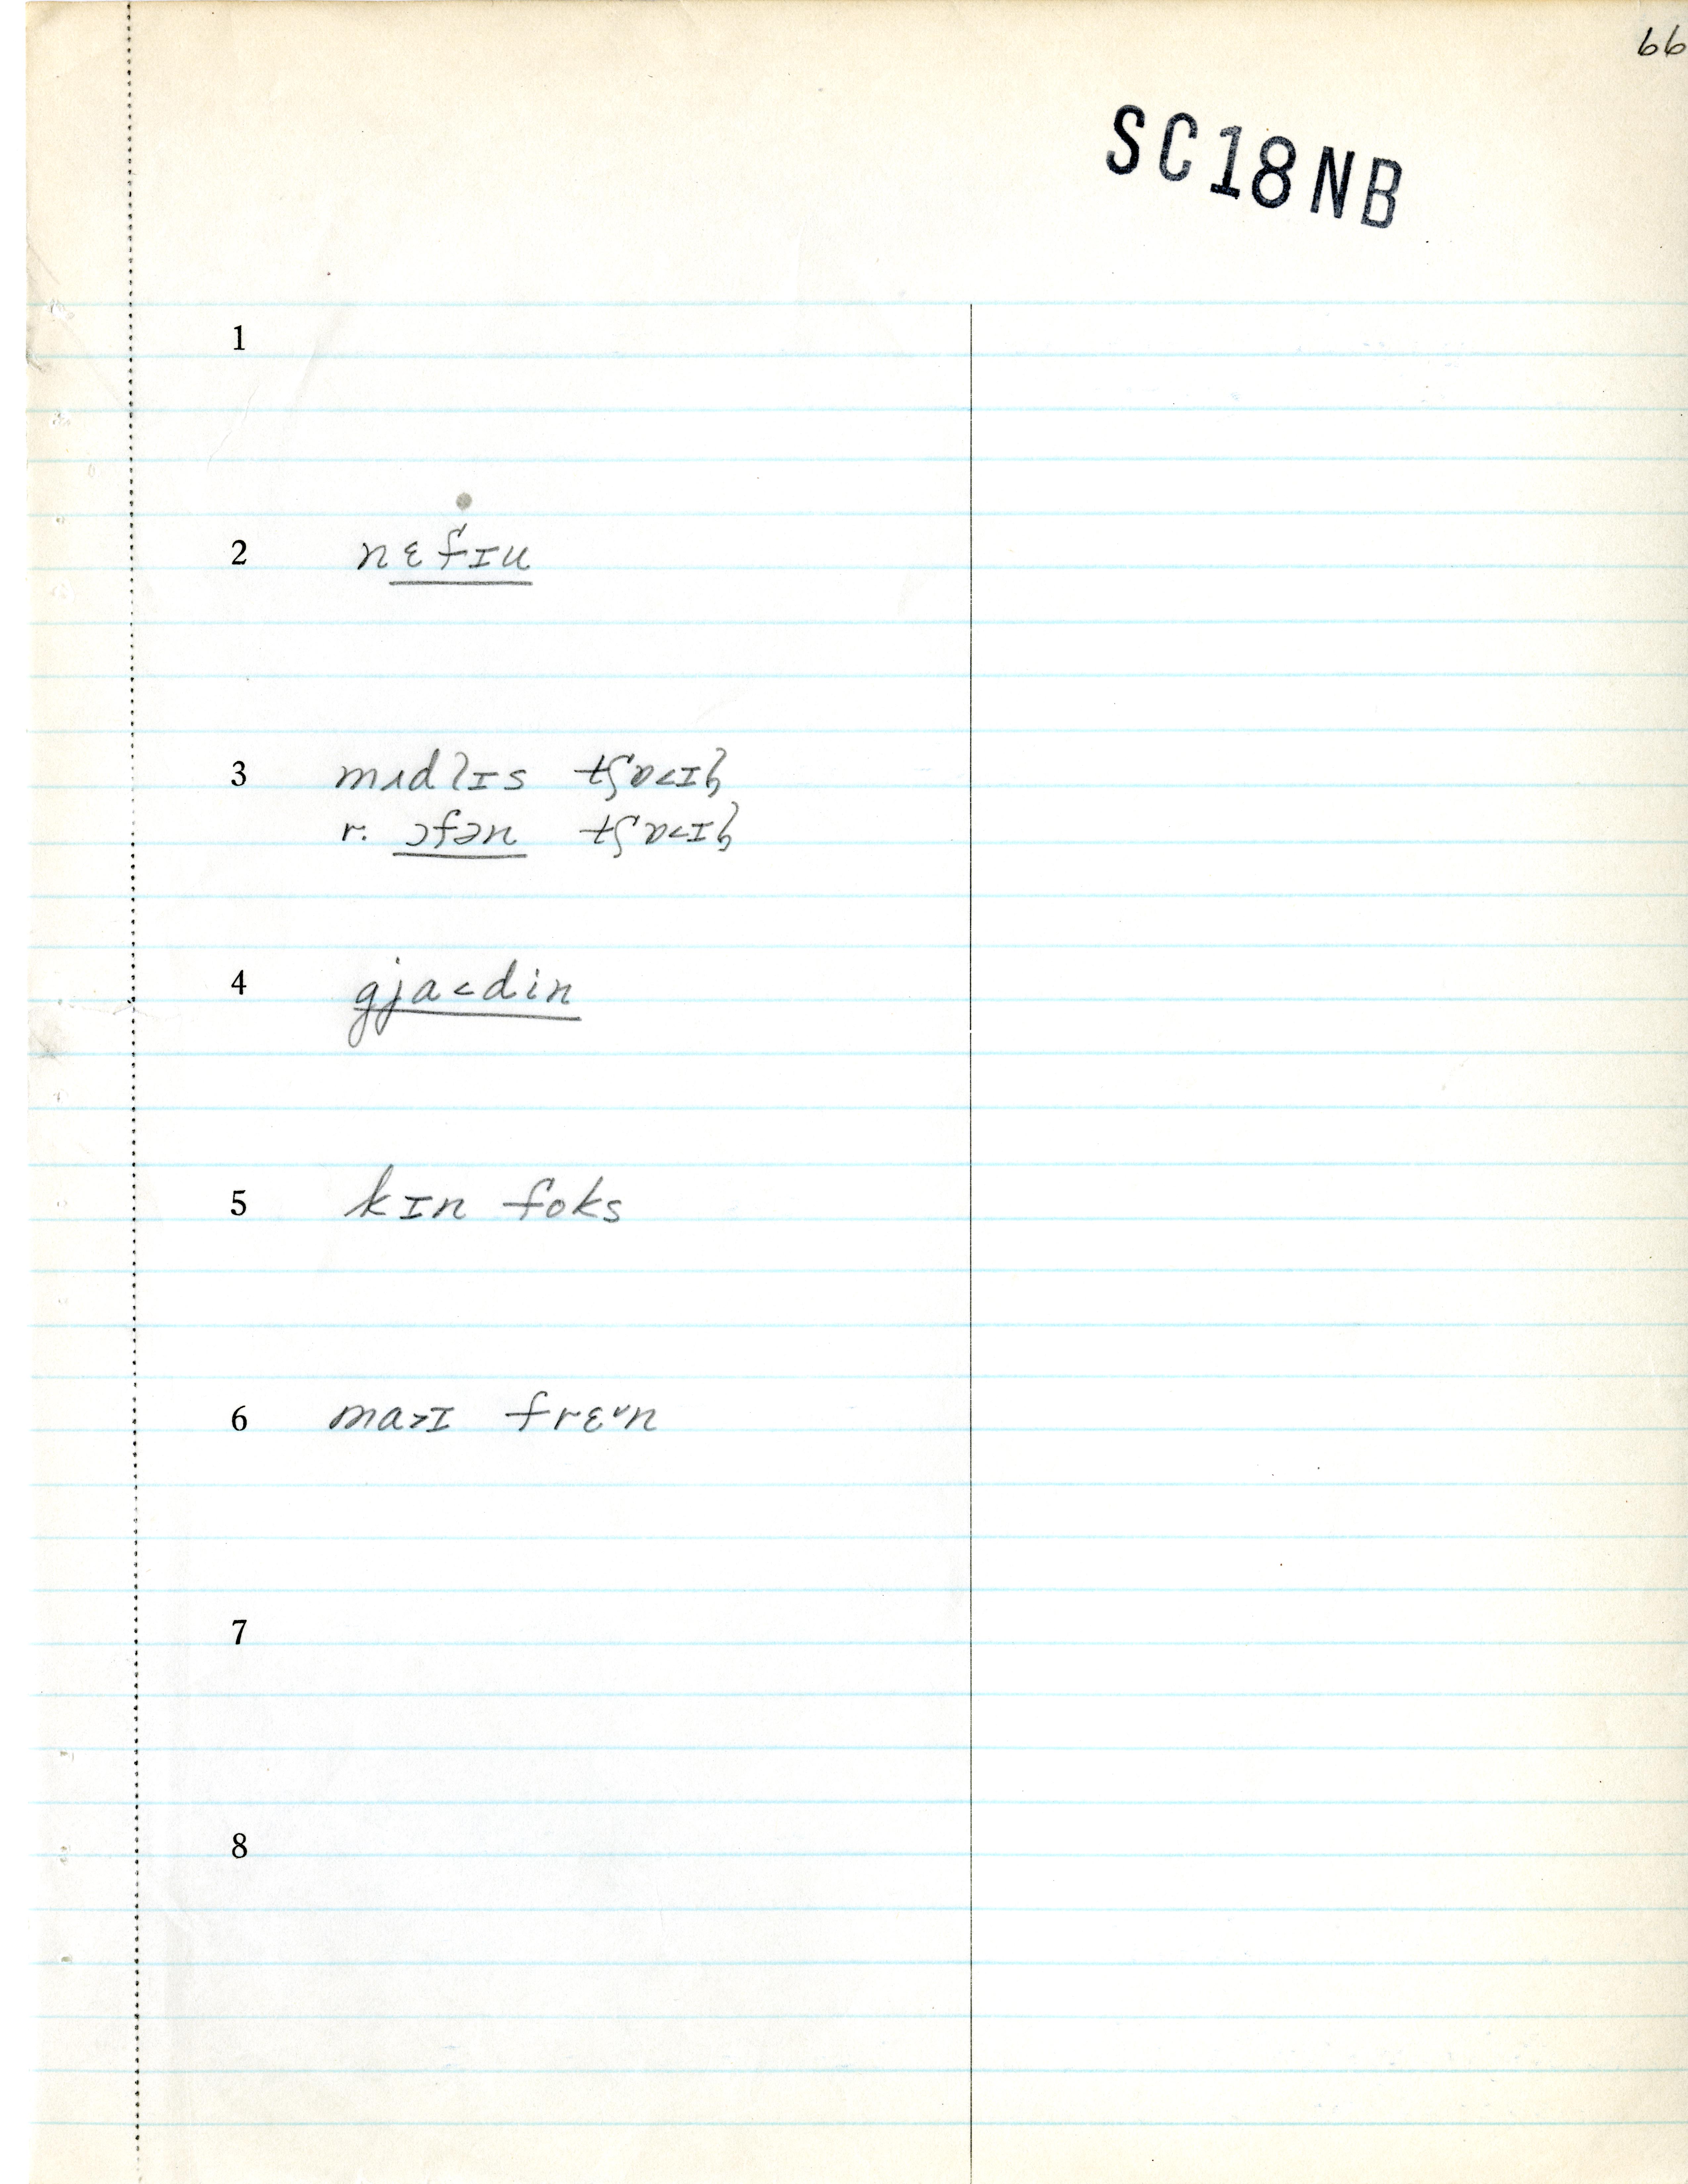 66
SC18NB
1
2 nɛfɪu
3 mʌdlɪs tʃɒ˂ɪɫ
r. ɔfən tʃɒ˂ɪɫ
4 gja˂din
5 kɪn foks
6 ma˃ɪ frɛ˅n
7
8